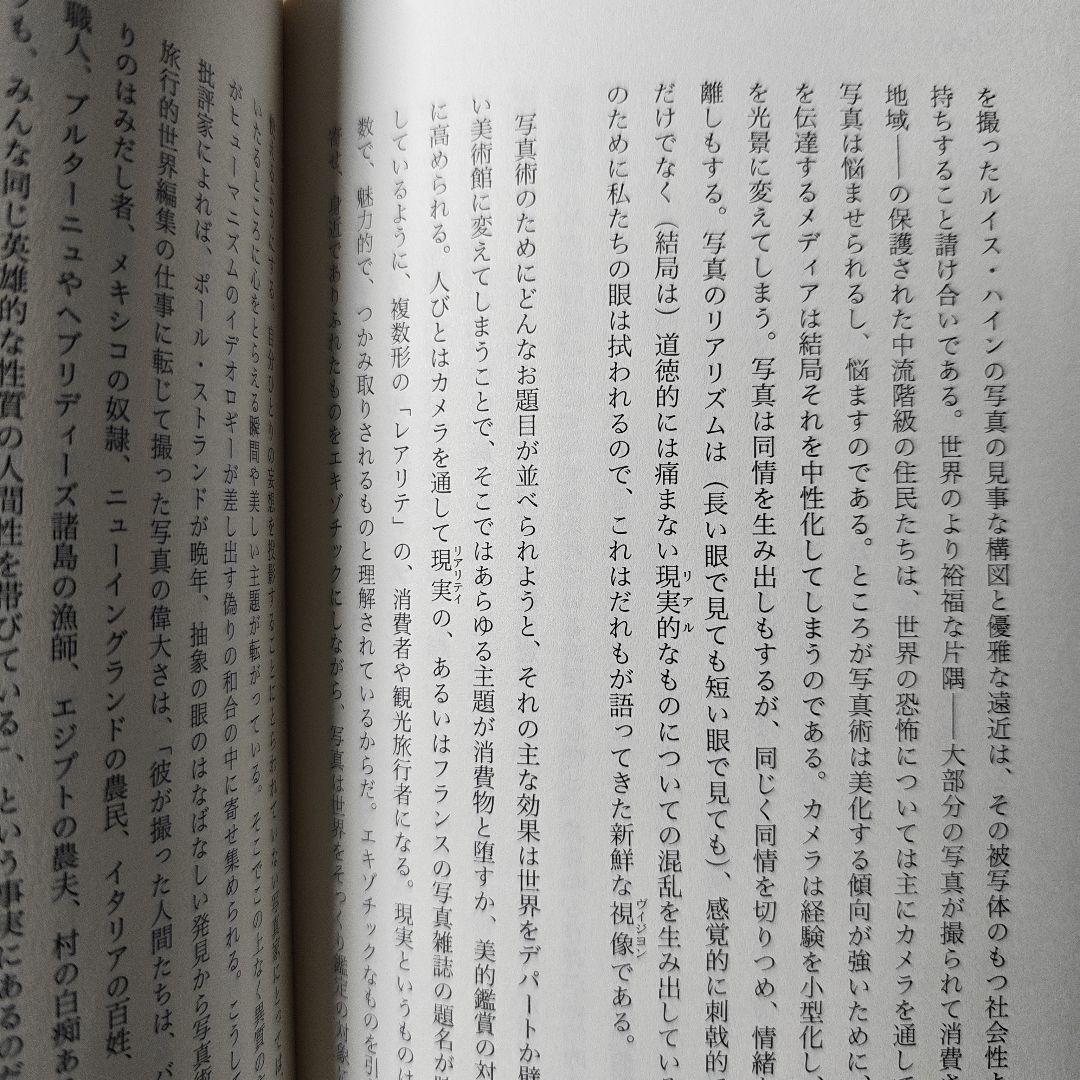 を撮ったルイス・ハインの写真の見事な構図と優雅な遠近は、その被写体のもつ社会性よ
持ちすること請け合いである。世界のより裕福な片隅――大部分の写真が撮られて消費さ
地域――の保護された中流階級の住民たちは、世界の恐怖については主にカメラを通して
写真は悩ませられるし、悩ますのである。ところが写真術は美化する傾向が強いために、
を伝達するメディアは結局それを中性化してしまうのである。カメラは経験を小型化し、
を光景に変えてしまう。写真は同情を生み出しもするが、同じく同情を切りつめ、情緒
離しもする。写真のリアリズムは(長い眼で見ても短い眼で見ても)、感覚的に刺戟的で
だけでなく(結局は)道徳的には痛まない現実的なものについての混乱を生み出してい
リアル
のために私たちの眼は拭われるので、これはだれもが語ってきた新鮮な視像である。
ヴィジョン
写真術のためにどんなお題目が並べられようと、それの主な効果は世界をデパートか壁
い美術館に変えてしまうことで、そこではあらゆる主題が消費物と堕すか、美的鑑賞の対
に高められる。人びとはカメラを通して現実の、あるいはフランスの写真雑誌の題名が
リアリティ
しているように、複数形の「レアリテ」の、消費者や観光旅行者になる。現実というものは
数で、魅力的で、つかみ取りされるものと理解されているからだ。エキゾチックなものを引
寄せ、身近でありふれたものをエキゾチックにしながら、写真は世界をそっくり鑑定の対象
自分ひとりの妄想を投影することにとらわれていない写真家にとっては
いたるところに心をとらえる瞬間や美しい主題が転がっている。そこでこの上なく異質の
がヒューマニズムのイデオロギーが差し出す偽りの和合の中に寄せ集められる。こうして
批評家によれば、ポール・ストランドが晩年、抽象の眼のはなばなしい発見から写真術
旅行的世界編集の仕事に転じて撮った写真の偉大さは、「彼が撮った人間たちは、バ
りのはみだし者、メキシコの奴隷、ニューイングランドの農民、イタリアの百姓、
職人、ブルターニュやヘブリディーズ諸島の漁師、エジプトの農夫、村の白痴あ
も、みんな同じ英雄的な性質の人間性を帯びている」、という事実にあるのだ